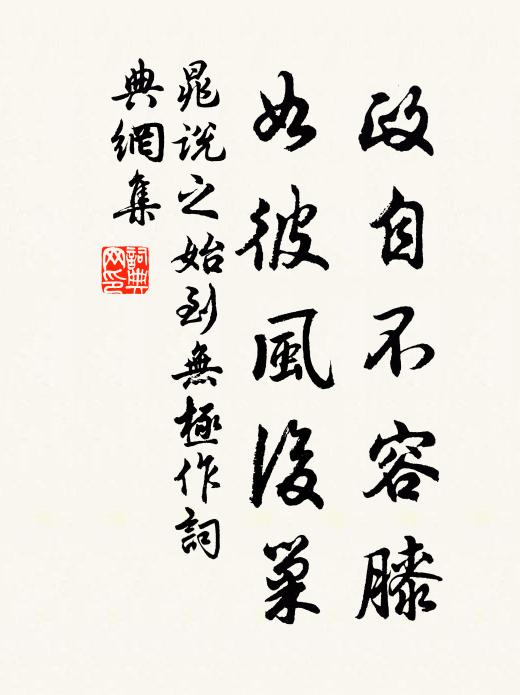 政自不容膝
如彼風後巢
晁說之始到無極作詞
典網集
詞典
网印